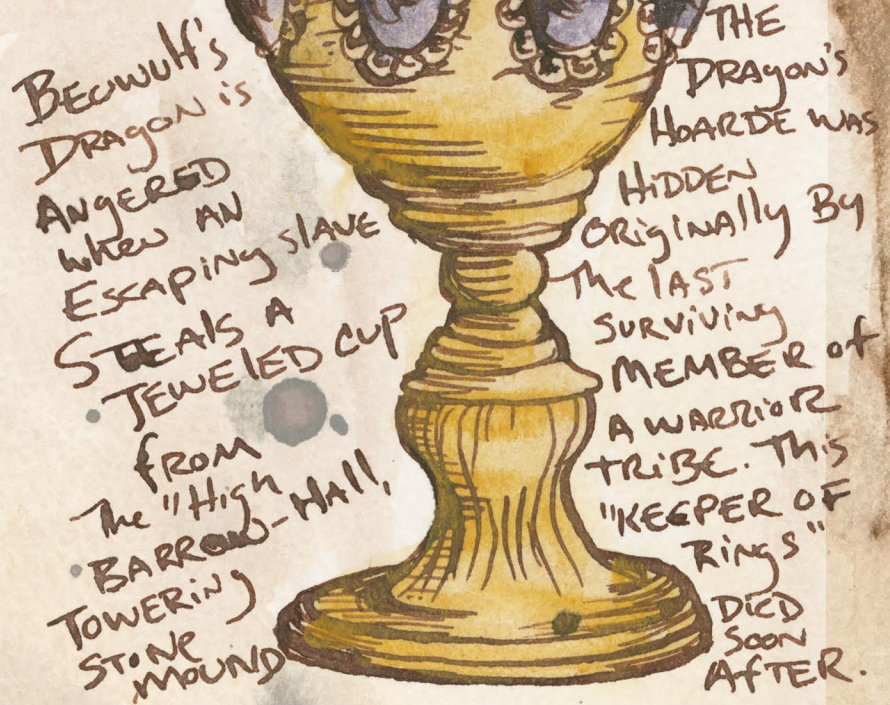 Beowulf's
Dragon is
Angered
when an
Escaping slave
Steals a
Jeweled cup
from
The "High
Barrow-Hall,
Towering
Stone
Mound
The
Dragon's
Hoarde was
Hidden
Originally By
The last
surviving
Member of
A warrior
tribe. This
"Keeper of
Rings"
Died
Soon
After.